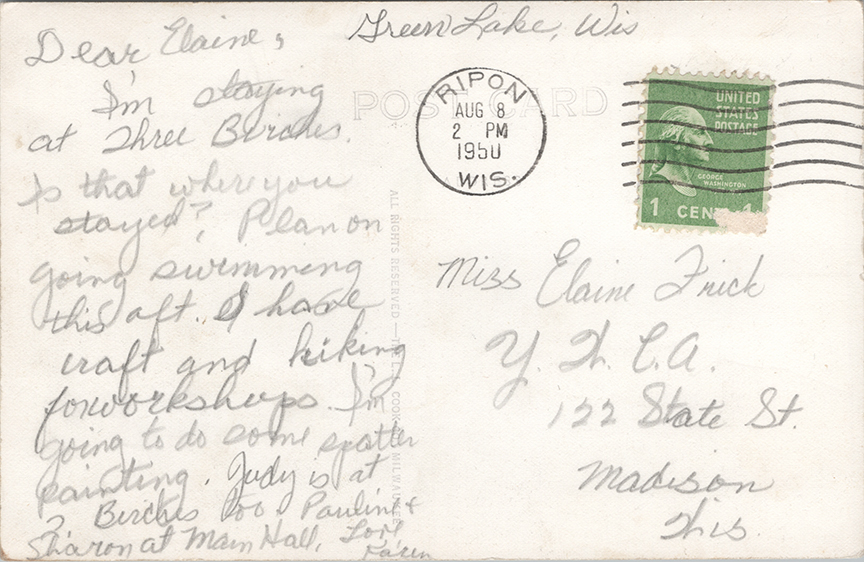 Green Lake, Wis
Dear Elaine,
I'm staying
at Three Birches.
Is that where you
stayed? Plan on
going swimming
this aft. I have
craft and hiking
for workshops. I'm
going to do some spatter
painting. Judy is at
3 Birches too. Pauline &
Sharon at Main Hall. Love
Karen
POST CARD
RIPON
AUG 8
2 PM
1950
WIS.
UNITED
STATES
POSTAGE
GEORGE
WASHINGTON
1 CENT 1
ALL RIGHTS RESERVED — THE L. L. COOK CO. MILWAUKEE
Miss Elaine Frick
Y. W. C. A.
122 State St.
Madison
Wis.